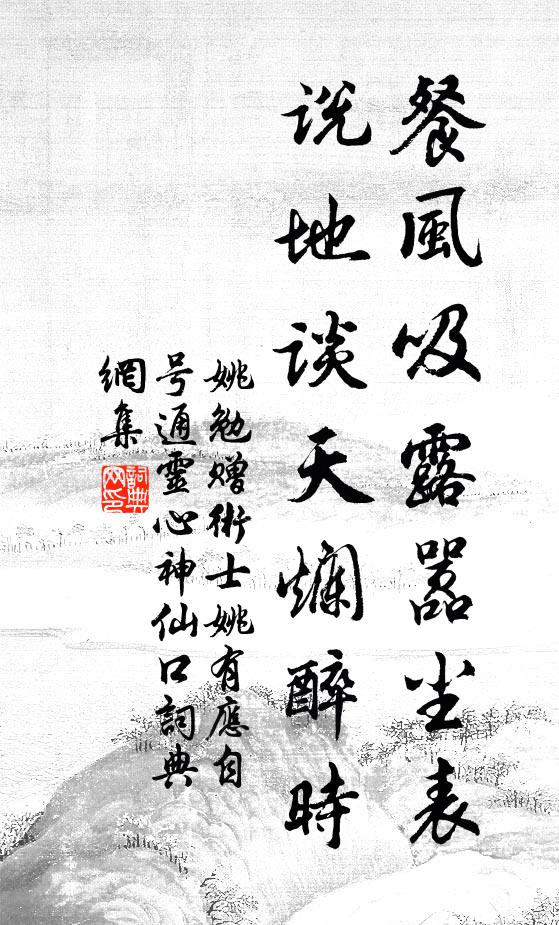 餐風吸露嚣尘表
说地谈天爛醉時
姚勉赠術士姚有應自
号通靈心神仙口詞典
網集
詞典网印